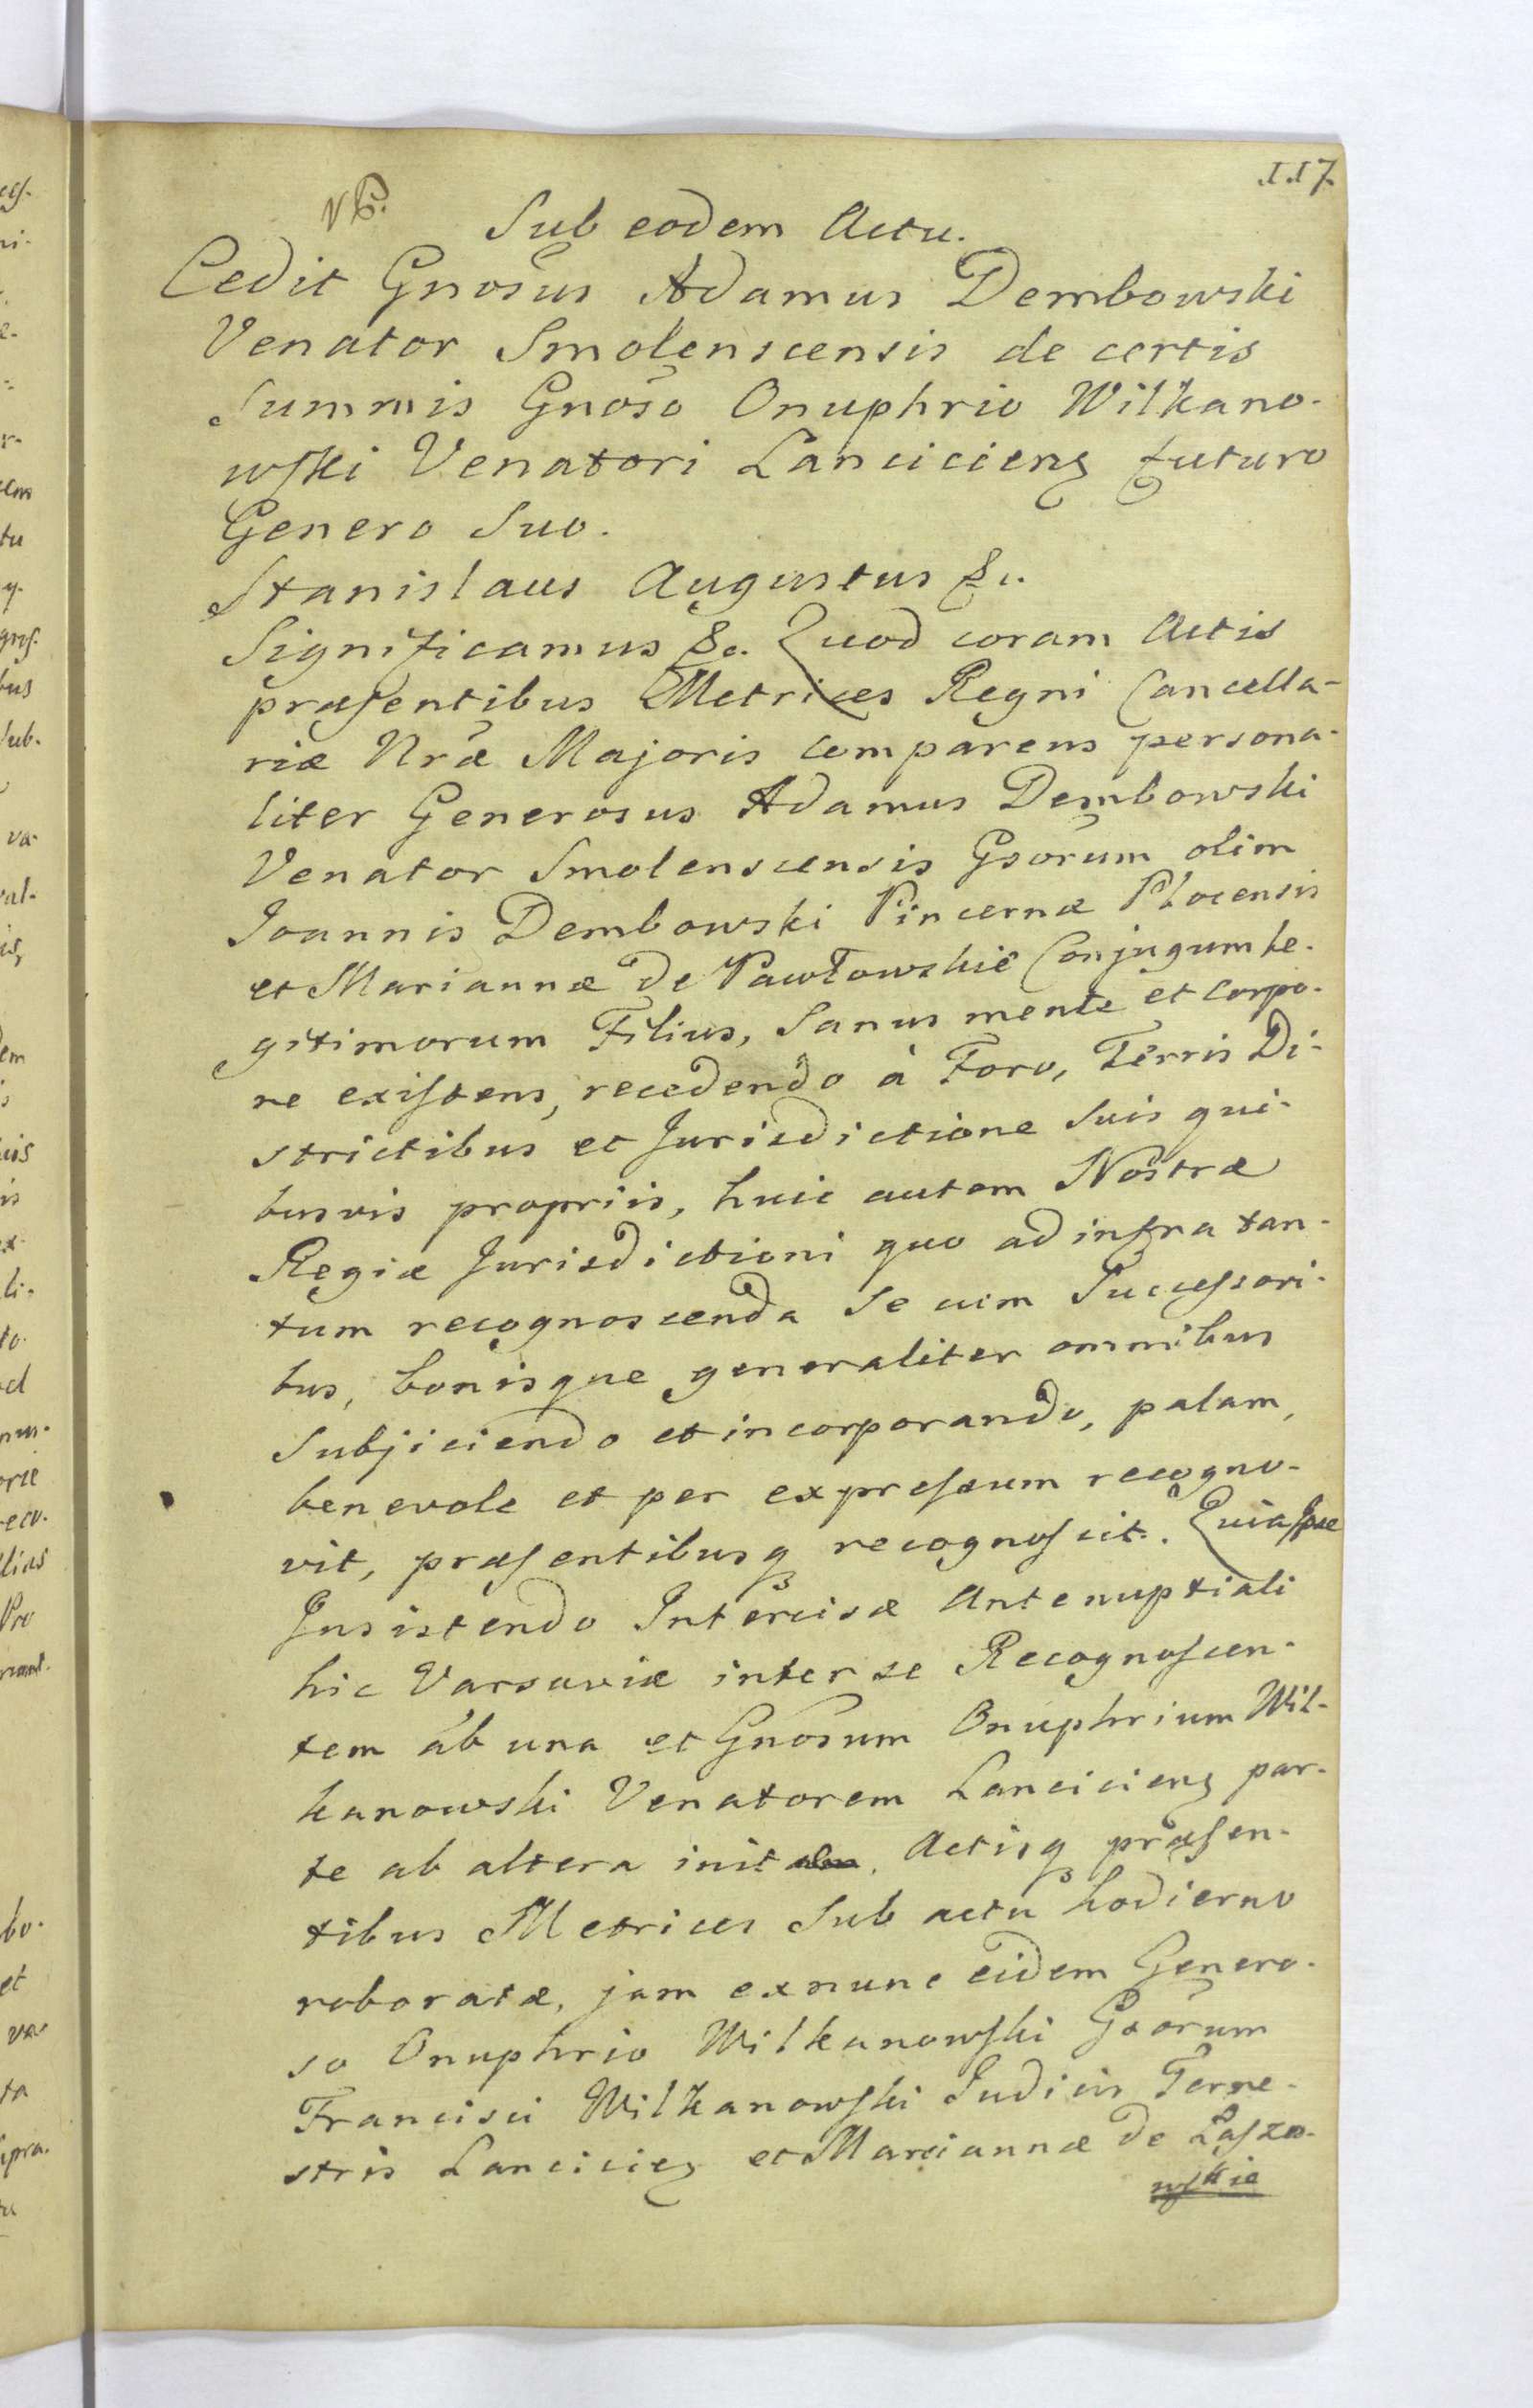 117
NB.
Sub eodem Actu.
Cedit Gnosus Adamus Dembowski
Venator Smolenscensis de certis
Summis Gnoso Onuphrio Wilkano-
wski Venatori Lanciciens futuro
Genero Suo.
Stanislaus Augustus &c.
Significamus &c. Quod coram Actis
præsentibus Metrices Regni Cancella-
riæ Nræ Majoris comparens persona-
liter Generosus Adamus Dembowski
Venator Smolenscensis Gsorum olim
Joannis Dembowski Pincernæ Plocensis
et Mariannæ de Pawłowskie Conjugum le-
gitimorum Filius, Sanus mente et corpo-
re existens, recedendo à Foro, Terris Di-
strictibus et Jurisdictione Suis qui-
busvis propriis, huic autem Nostræ
Regiæ Jurisdictioni quo ad infra tan-
tum recognoscenda Se cum Successori-
bus, bonisque generaliter omnibus
Subjiciendo et incorporando, palam,
benevole et per expressum recogno-
vit, præsentibusq recognoscit. Quia Ipse
Insistendo Intercisæ Antenuptiali
hic Varsaviæ inter se Recognoscen-
tem ab una et Gnosum Onuphrium Wil-
kanowski Venatorem Lanciciens par-
te ab altera init . Actisq præsen-
tibus Metrices Sub actu hodierno
roboratæ, jam exnunc eidem Genero-
so Onuphrio Wilkanowski Gsorum
Francisci Wilkanowski Judicis Terre-
stris Lancicien et Mariannæ de Laszo-
wskie